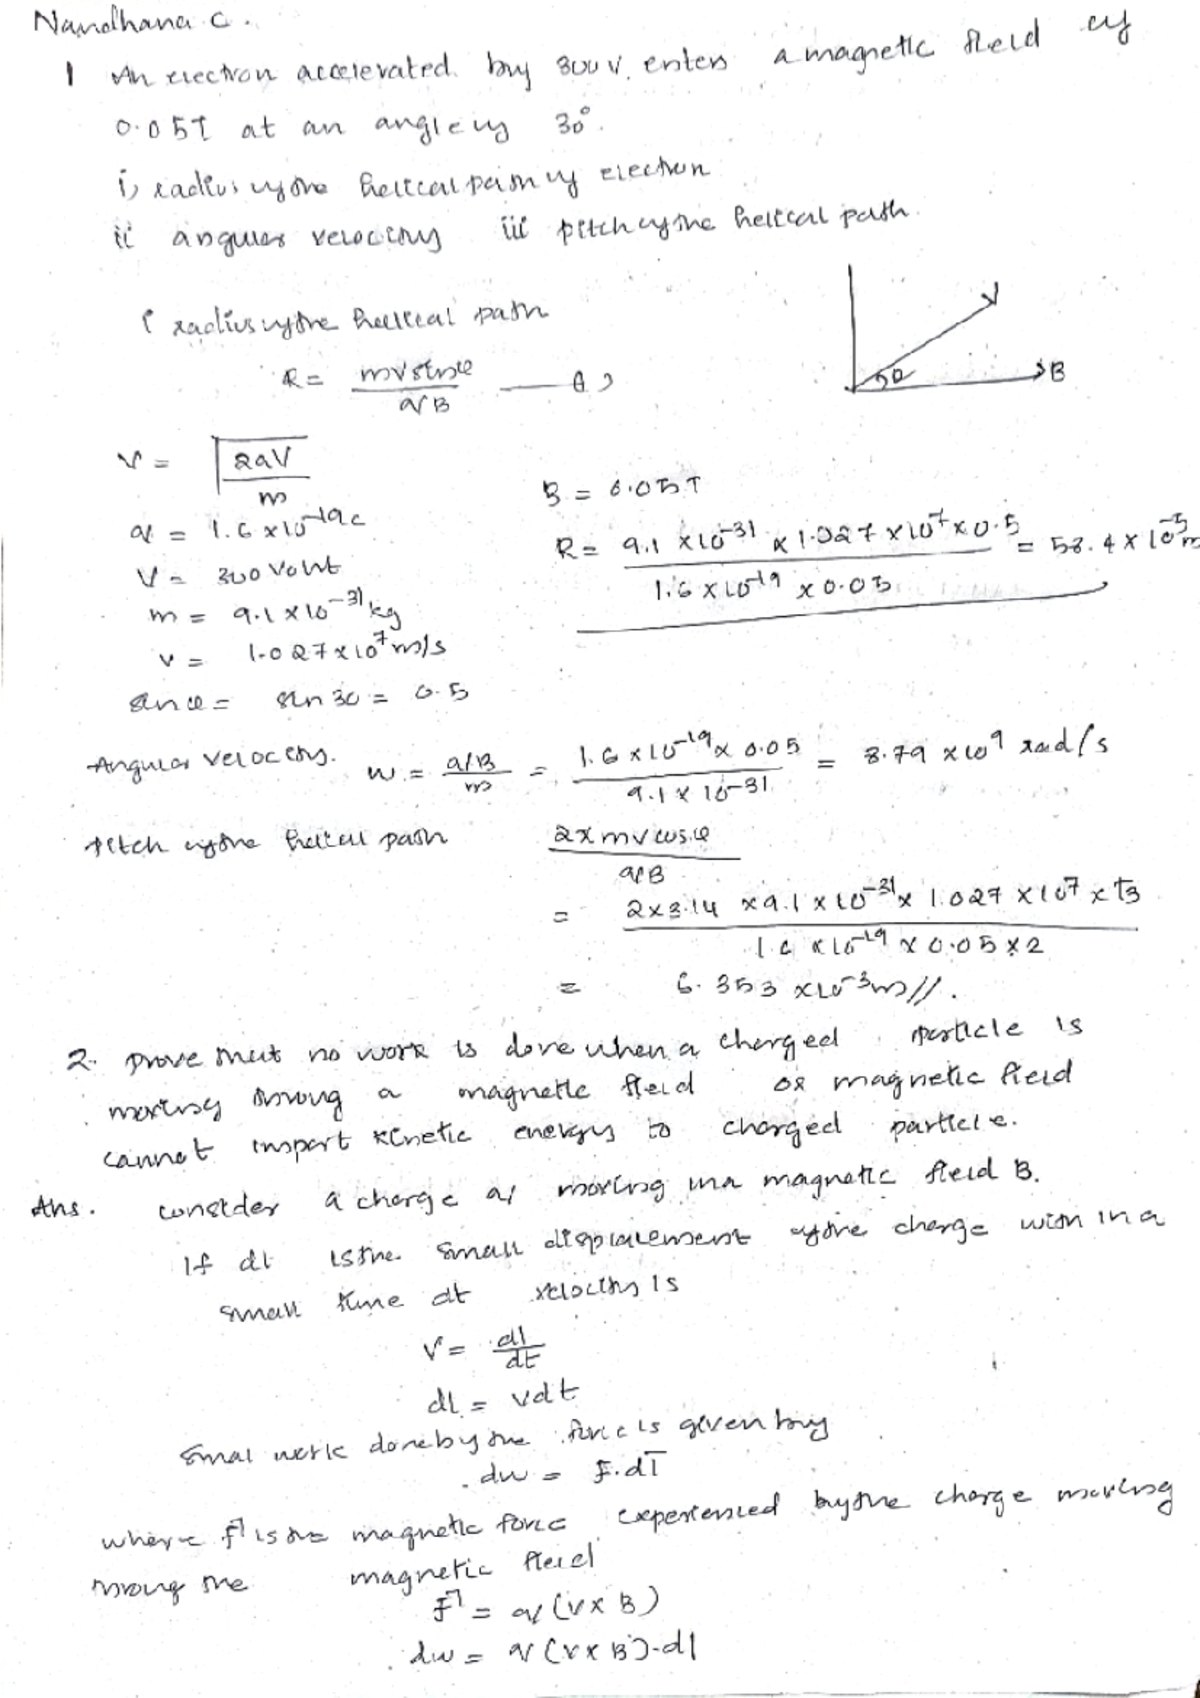 Nandhana C.
1 An electron accelerated by 300 V. enters a magnetic field of
0.05T at an angle of 30°.
i) radius of the helical path of electron
ii angular velocity iii pitch of the helical path.
i radius of the helical path
R = mv sinφ / qB —— A)
30 B
V = √(2qV / m)
q = 1.6 × 10^-19 C
V = 300 Volt
m = 9.1 × 10^-31 kg
v = 1.027 × 10^7 m/s
sinφ = sin 30 = 0.5
B = 0.05T
R = 9.1 × 10^-31 × 1.027 × 10^7 × 0.5 / 1.6 × 10^-19 × 0.05 = 58.4 × 10^-5 m
Angular velocity. w = qB / m = 1.6 × 10^-19 × 0.05 / 9.1 × 10^-31 = 8.79 × 10^9 rad/s
Pitch of the helical path 2π mv cosφ / qB
= 2 × 3.14 × 9.1 × 10^-31 × 1.027 × 10^7 × √3 / 1.6 × 10^-19 × 0.05 × 2
= 6.353 × 10^-3 m//.
2. Prove that no work is done when a charged particle is
moving through a magnetic field or magnetic field
cannot impart kinetic energy to charged particle.
Ans. consider a charge q moving in a magnetic field B.
If dl is the small displacement of the charge with in a
small time dt velocity is
V = dl / dt
dl = vdt
Small work done by the force is given by
dw = F.dl
where F is the magnetic force experienced by the charge moving
through the magnetic field
F = q (V × B)
dw = q (V × B).dl